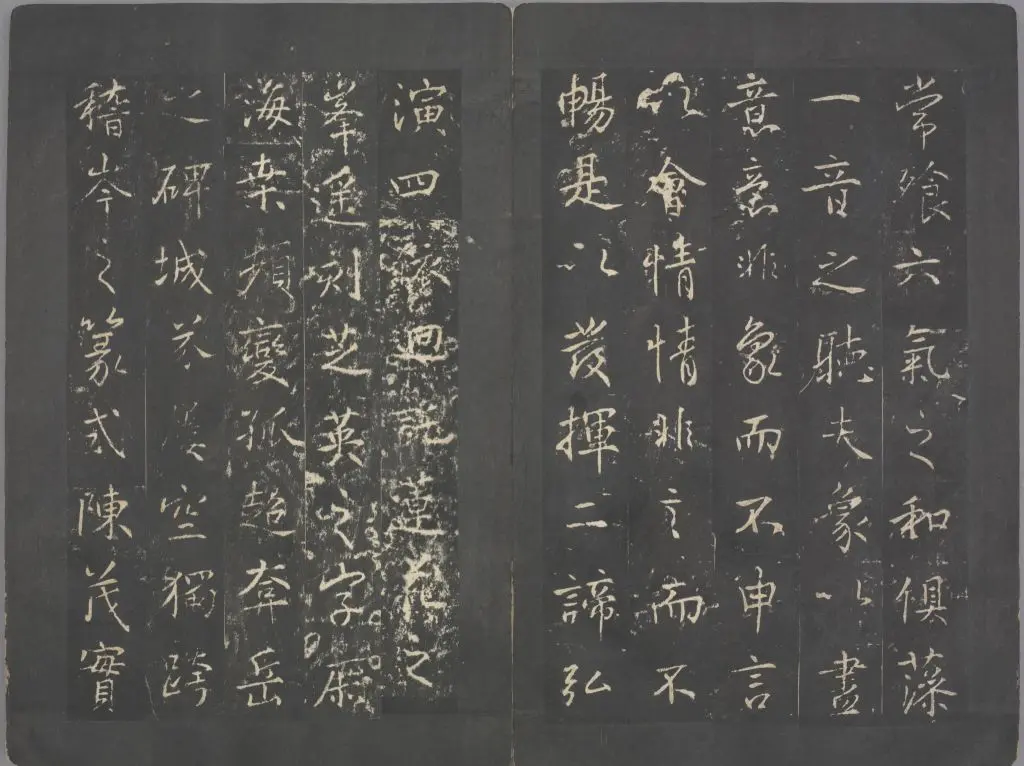 常飡六氣之和俱藻
一音之聽夫象以盡
意意非象而不申言
以會情情非言而不
暢是以發揮二諦弘
演四 迴 蓮花之
峯遥刻芝英之字
海桑頻變孤趍奔岳
之碑城芥 空獨跨
稽岑之篆式陳茂實